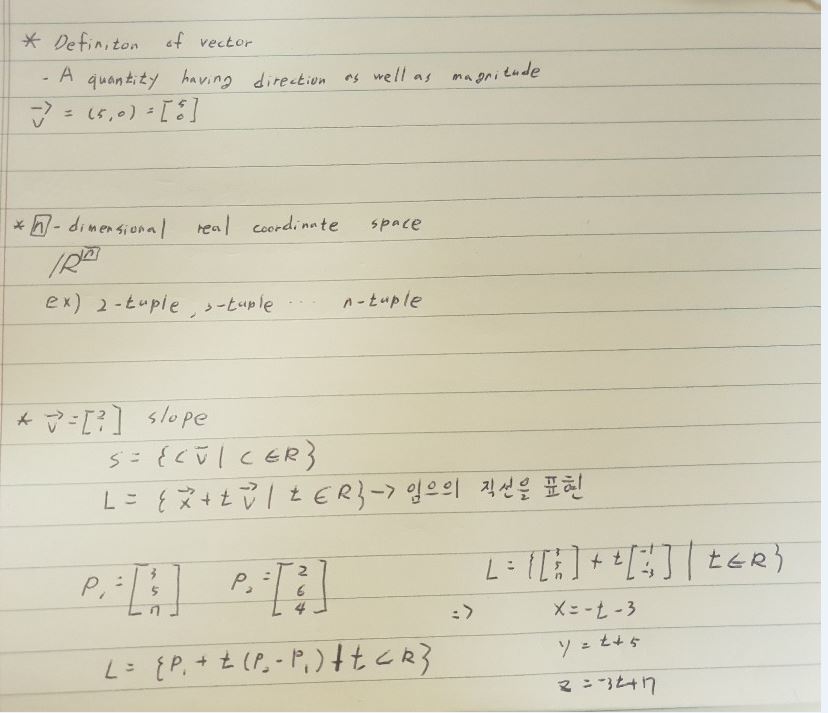 * Definiton of vector
- A quantity having direction as well as magnitude
v⃗ = (5,0) = [5 0]
* n - dimensional real coordinate space
ℝⁿ
ex) 2-tuple, 3-tuple ... n-tuple
* v⃗ = [2 1] slope
S = {c v̄ | c ∈ R}
L = {x⃗ + t v⃗ | t ∈ R} -> 임으의 직선을 표현
P₁ = [3 5 7] P₂ = [2 6 4]
L = {P₁ + t (P₂ - P₁) | t ∈ R}
=> L = {[3 5 7] + t [-1 1 -3] | t ∈ R}
x = -t - 3
y = t + 5
z = -3t + 7